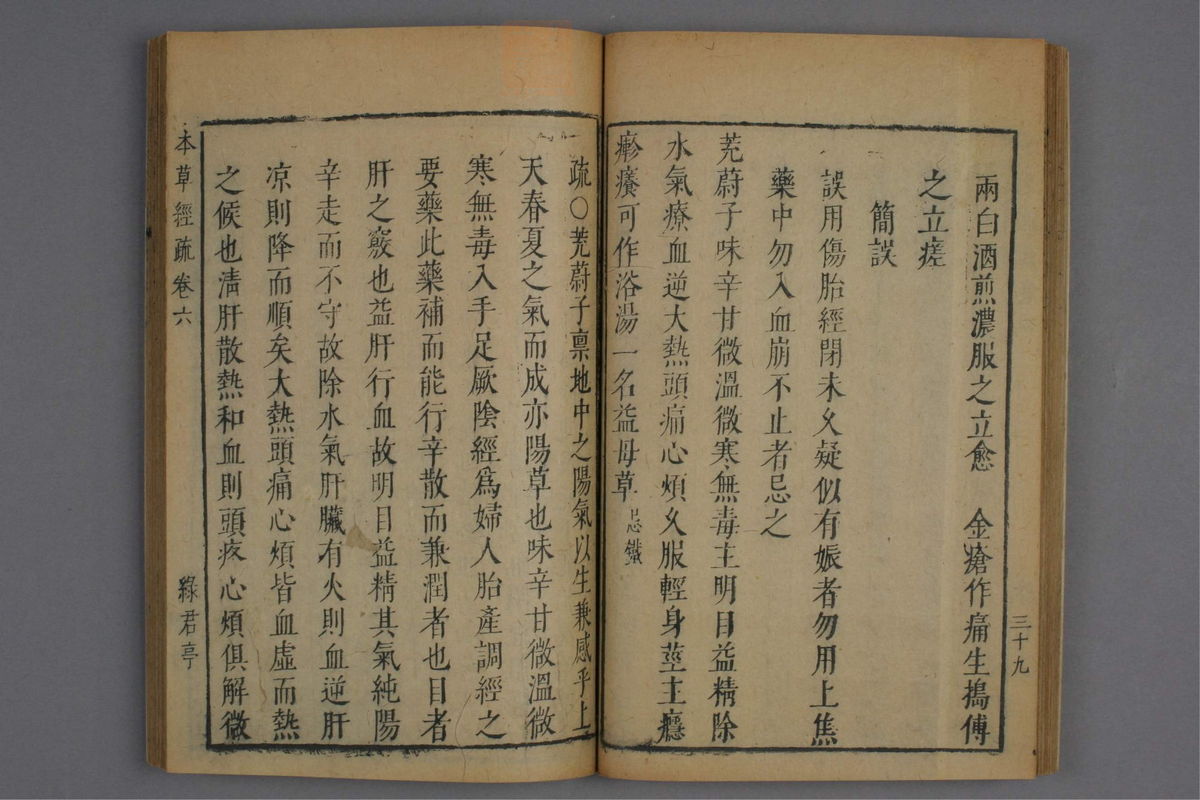 兩白酒煎濃服之立愈　金瘡作痛生搗傅
之立瘥
簡誤
誤用傷胎經閉未久疑似有娠者勿用上焦
藥中勿入血崩不止者忌之
茺蔚子味辛甘微溫微寒無毒主明目益精除
水氣療血逆大熱頭痛心煩久服輕身莖主癮
疹癢可作浴湯一名益母草忌鐵
三十九
疏〇茺蔚子禀地中之陽氣以生兼感乎上
天春夏之氣而成亦陽草也味辛甘微溫微
寒無毒入手足厥陰經爲婦人胎產調經之
要藥此藥補而能行辛散而兼潤者也目者
肝之竅也益肝行血故明目益精其氣純陽
辛走而不守故除水氣肝臟有火則血逆肝
凉則降而順矣大熱頭痛心煩皆血虛而熱
之候也淸肝散熱和血則頭疼心煩俱解微
本草經疏卷六
綠君亭